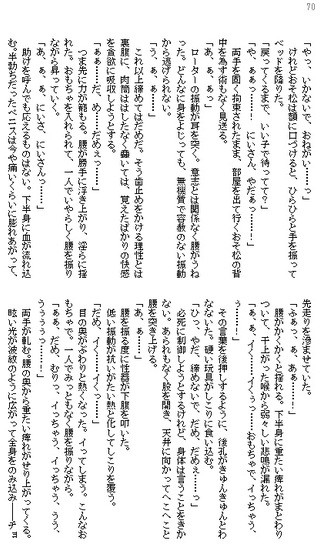 70
「やっ、いかないで、おねがい……っ」
けれどおそ松は額に口づけると、ひらひらと手を振って
ベッドを降りた。
「戻ってくるまで、いい子で待ってて？」
「やだぁ……っ！　にいさん、やだぁっ……！」
両手を固く拘束されたまま、部屋を出て行くおそ松の背
中を為す術もなく見送る。
ローターの振動が耳を突く。意志とは関係なく腰がうね
った。どんなに身をよじっても、無機質で容赦のない振動
から逃げられない。
「う、ぁぁ、ぁ……っ」
これ以上締めてはだめだ。そう歯止めをかける理性とは
裏腹に、肉襞ははしたなく蠢いては、覚えたばかりの快感
を貪欲に感受しようとする。
「ぁぁ……だ、め……だめぇっ……」
つま先に力が籠もる。腰が勝手に浮き上がり、淫らに揺
れた。おもちゃを入れられて、一人でいやらしく腰を振り
ながら昇っていく。
「あ、ぁぁ、にいさ、にいさんっ……」
助けを呼んでも応えるものはない。下半身に血が流れ込
む。半勃ちだったペニスは今や痛いくらいに膨れあがって、
先走りを滲ませていた。
「ふぁっ、ぁ、あぁ……っ」
腰がかくかくと揺れる。下半身に重たい痺れがまとわり
ついて、干上がった喉から弱々しい悲鳴が漏れた。
「ぁぁ、イく……イく……っ、おもちゃで、イっちゃう、
う……っ」
その言葉を後押しするように、後孔がきゅんきゅんとわ
なないた。硬い玩具がしこりに食い込む。
「ひっ、やだ、締めないで、だめ、だめぇ……っ」
必死に制御しようとするけれど、身体は言うことをきか
ない。あられもなく股を開き、天井に向かってへこへこと
腰を突き上げる。
「あ、ぁ……っ」
腰を振る度に性器が下腹を叩いた。
低い振動が抗いがたい熱と化してしこりを覆う。
「だめ、イく……っ」
目の奥がぶわりと熱くなった。イってしまう。こんなお
もちゃで、一人でみっともなく腰を振りながら。
「ぁぁ、だめ、むりっ、イっちゃう、イっちゃう、うう、
ううぅぅ……っ！」
両手が軋む。腰の奥から重たい痺れがせり上がってくる。
眩い光が波紋のように広がって全身をのみ込み――チョ